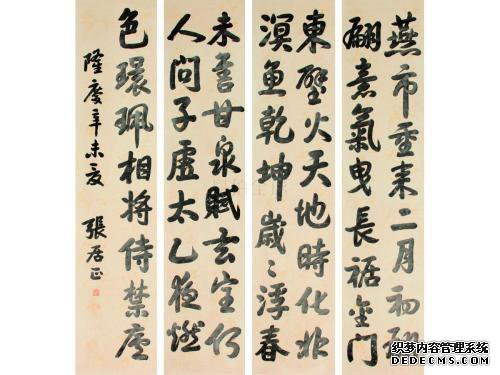 燕市重来二月初翩
翩意氣曳長裾金門
東壁火天地時化北
溟魚乾坤歲〻浮春
未售甘泉賦玄室何
人問子虛太乙夜燃
色環珮相將侍禁廬
隆慶辛未夏 張居正
织梦内容管理系统
DEDECMS.COM